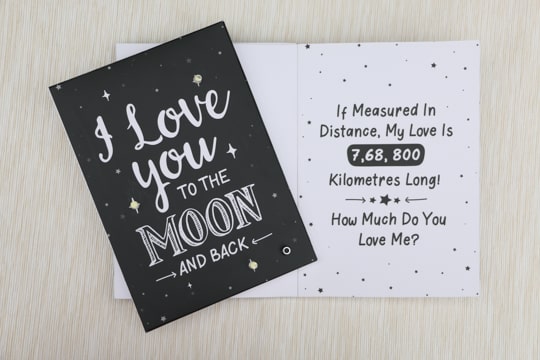 I Love
you
TO THE
MOON
AND BACK
If Measured In
Distance, My Love Is
7,68, 800
Kilometres Long!
How Much Do You
Love Me?